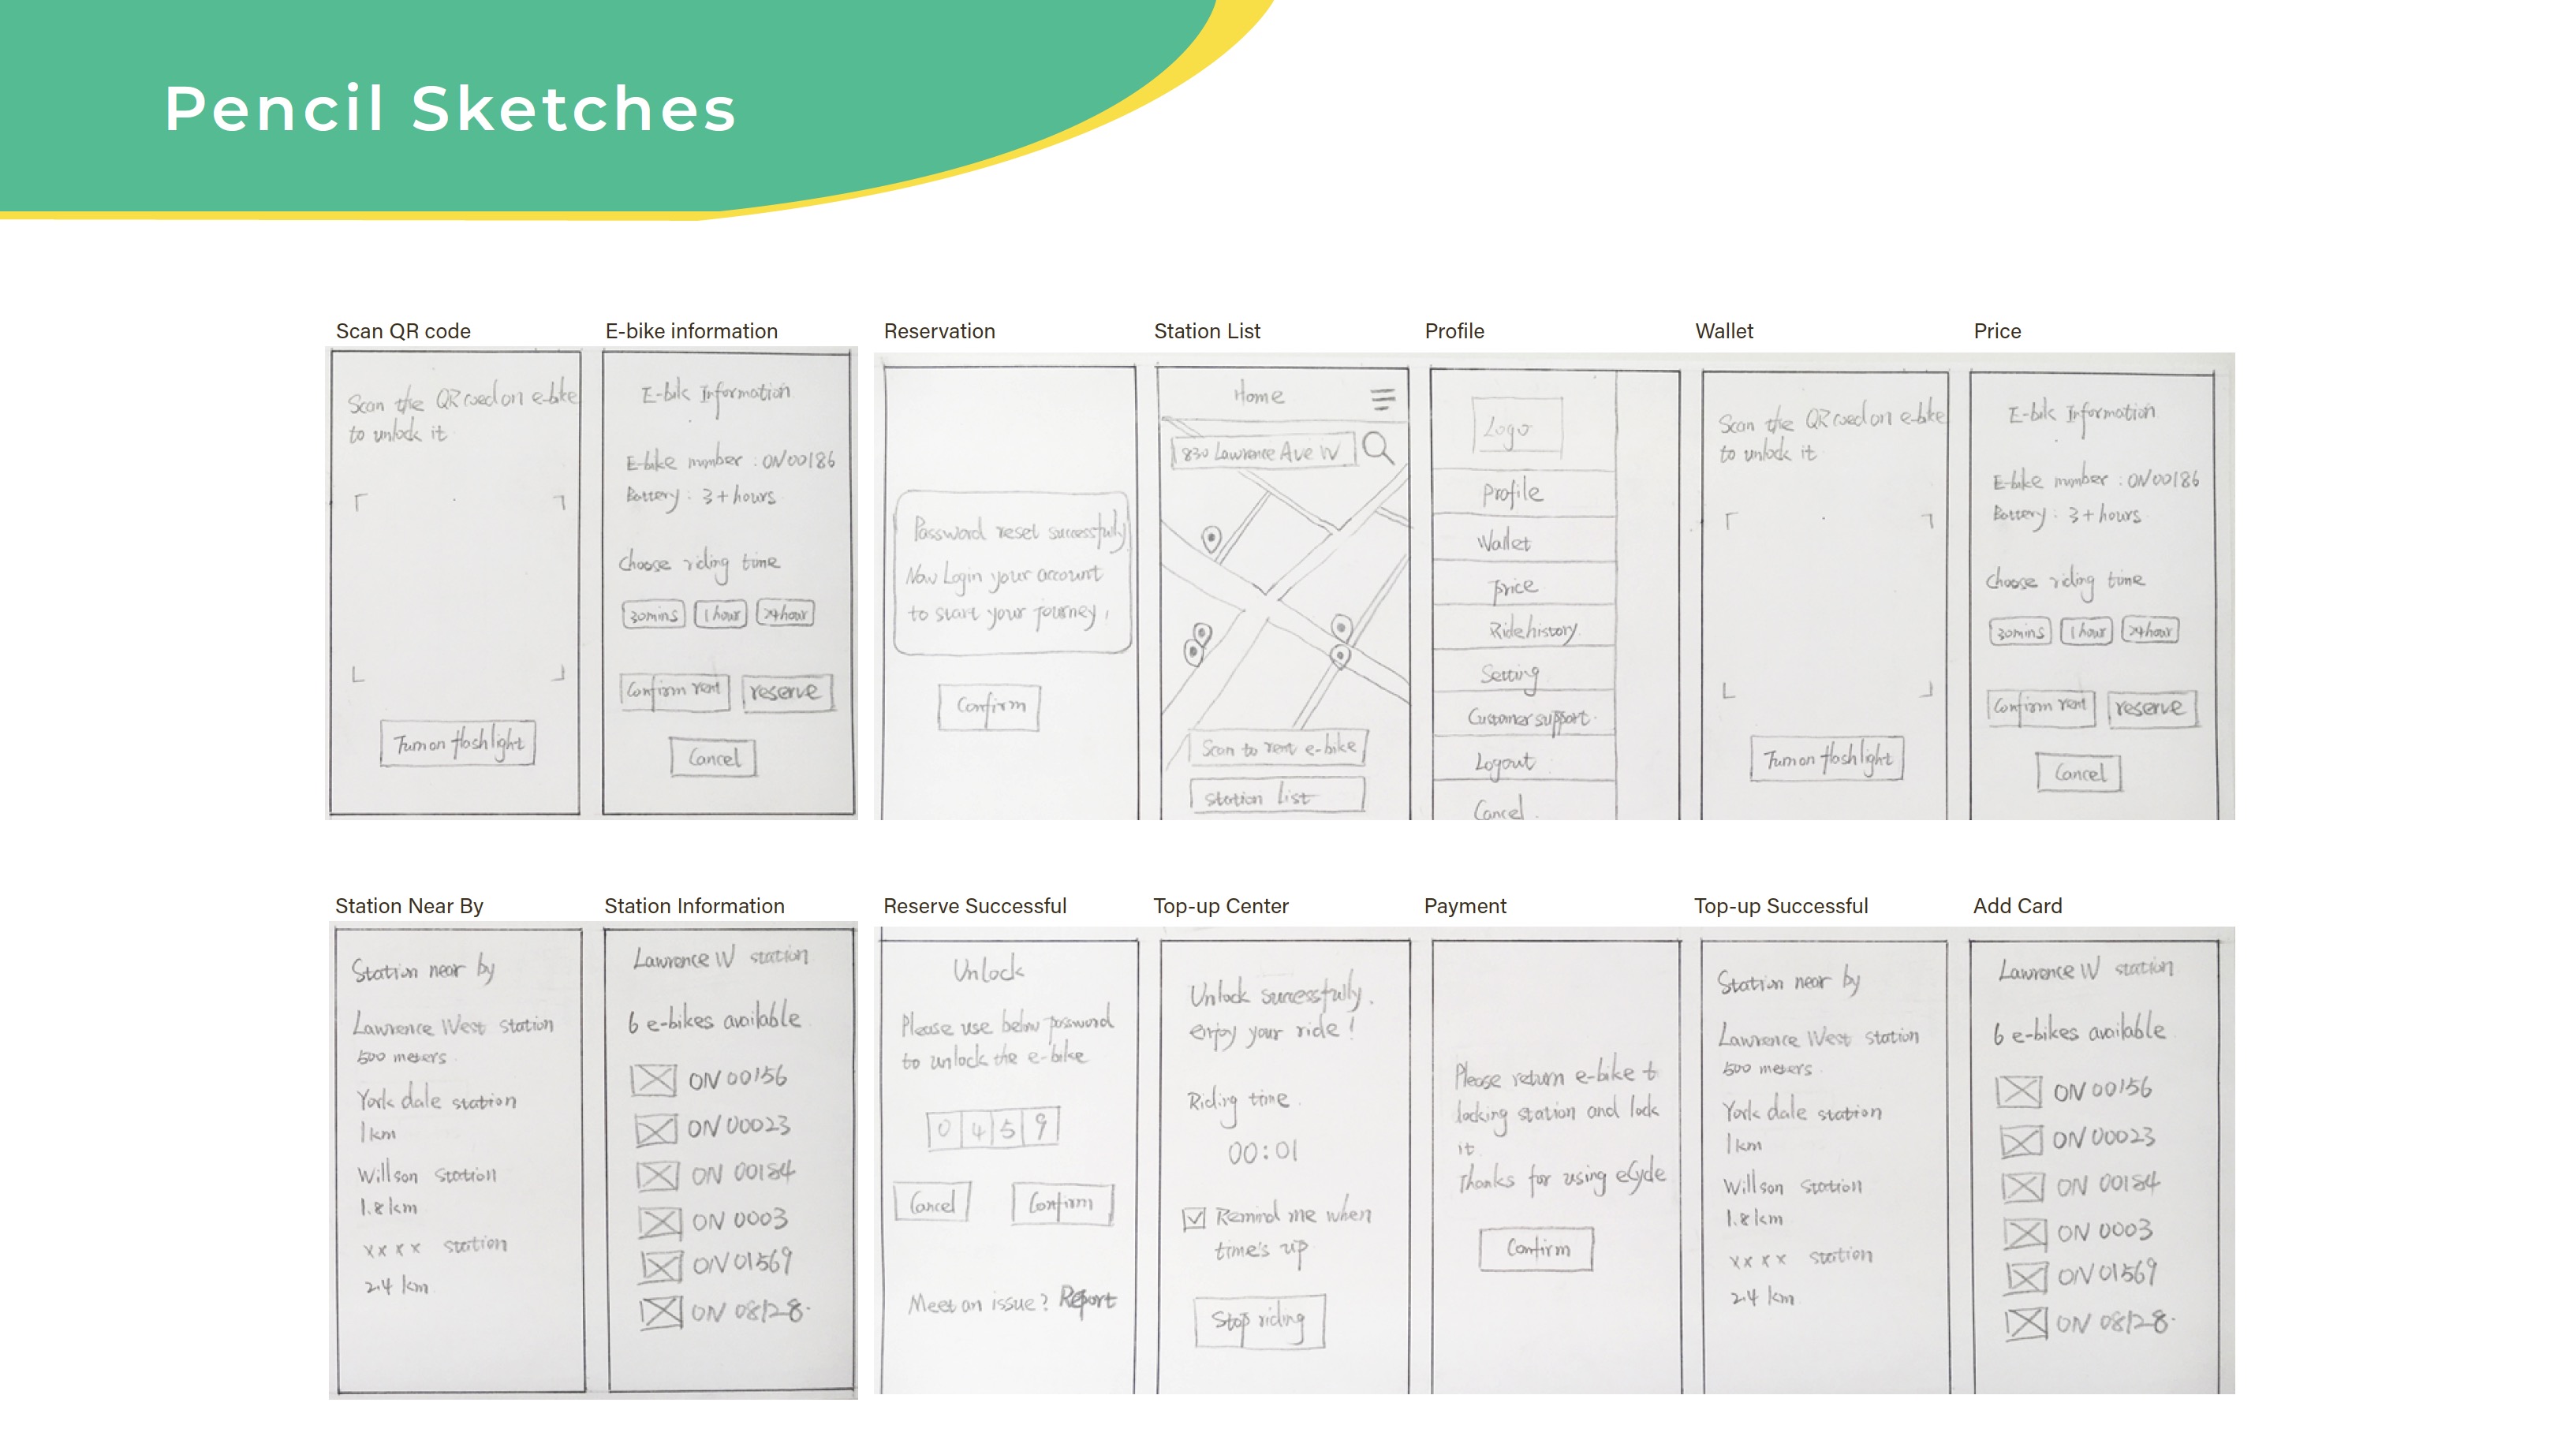 Pencil Sketches
Scan QR code
Scan the QR coed on e-bike
to unlock it
Turn on flashlight
E-bike information
E-bik Information
E-bike number : ON00186
Battery : 3+hours
Choose riding time
30mins 1 hour 24hour
Confirm rent reserve
Cancel
Reservation
Password reset successfully
Now Login your account
to start your journey,
Confirm
Station List
Home
830 Lawrence Ave W
Scan to rent e-bike
Station List
Profile
Logo
Profile
Wallet
Price
Ride history
Setting
Customer support
Logout
Cancel
Wallet
Scan the QR coed on e-bike
to unlock it
Turn on flashlight
Price
E-bik Information
E-bike number : ON00186
Battery : 3+hours
Choose riding time
30mins 1 hour 24hour
Confirm rent reserve
Cancel
Station Near By
Station near by
Lawrence West station
500 meters
York dale station
1km
Willson Station
1.8km
xxxx station
2.4 km
Station Information
Lawrence W station
6 e-bikes available
ON 00156
ON 00023
ON 00184
ON 0003
ON 01569
ON 08128
Reserve Successful
Unlock
Please use below password
to unlock the e-bike
0 4 5 9
Cancel Confirm
Meet an issue? Report
Top-up Center
Unlock successfully.
enjoy your ride!
Riding time
00:01
Remind me when
time's up
Stop riding
Payment
Please return e-bike t
locking station and lock
it.
Thanks for using eCycle
Confirm
Top-up Successful
Station near by
Lawrence West station
500 meters
York dale station
1km
Willson Station
1.8km
xxxx station
2.4 km
Add Card
Lawrence W station
6 e-bikes available
ON 00156
ON 00023
ON 00184
ON 0003
ON 01569
ON 08128